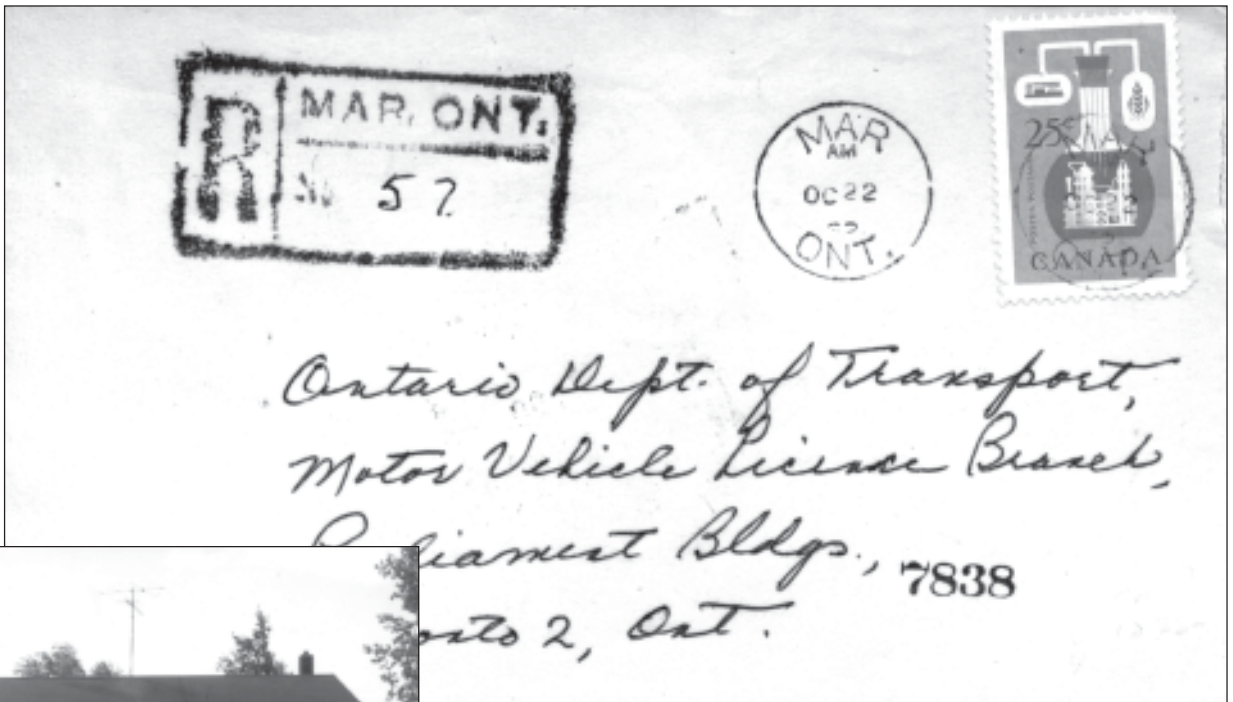 R
MAR, ONT.
No 57
MAR
AM
OC 22
ONT.
25¢
CANADA
Ontario Dept. of Transport,
Motor Vehicle Licence Branch,
Bldgs., 7838
2, Ont.